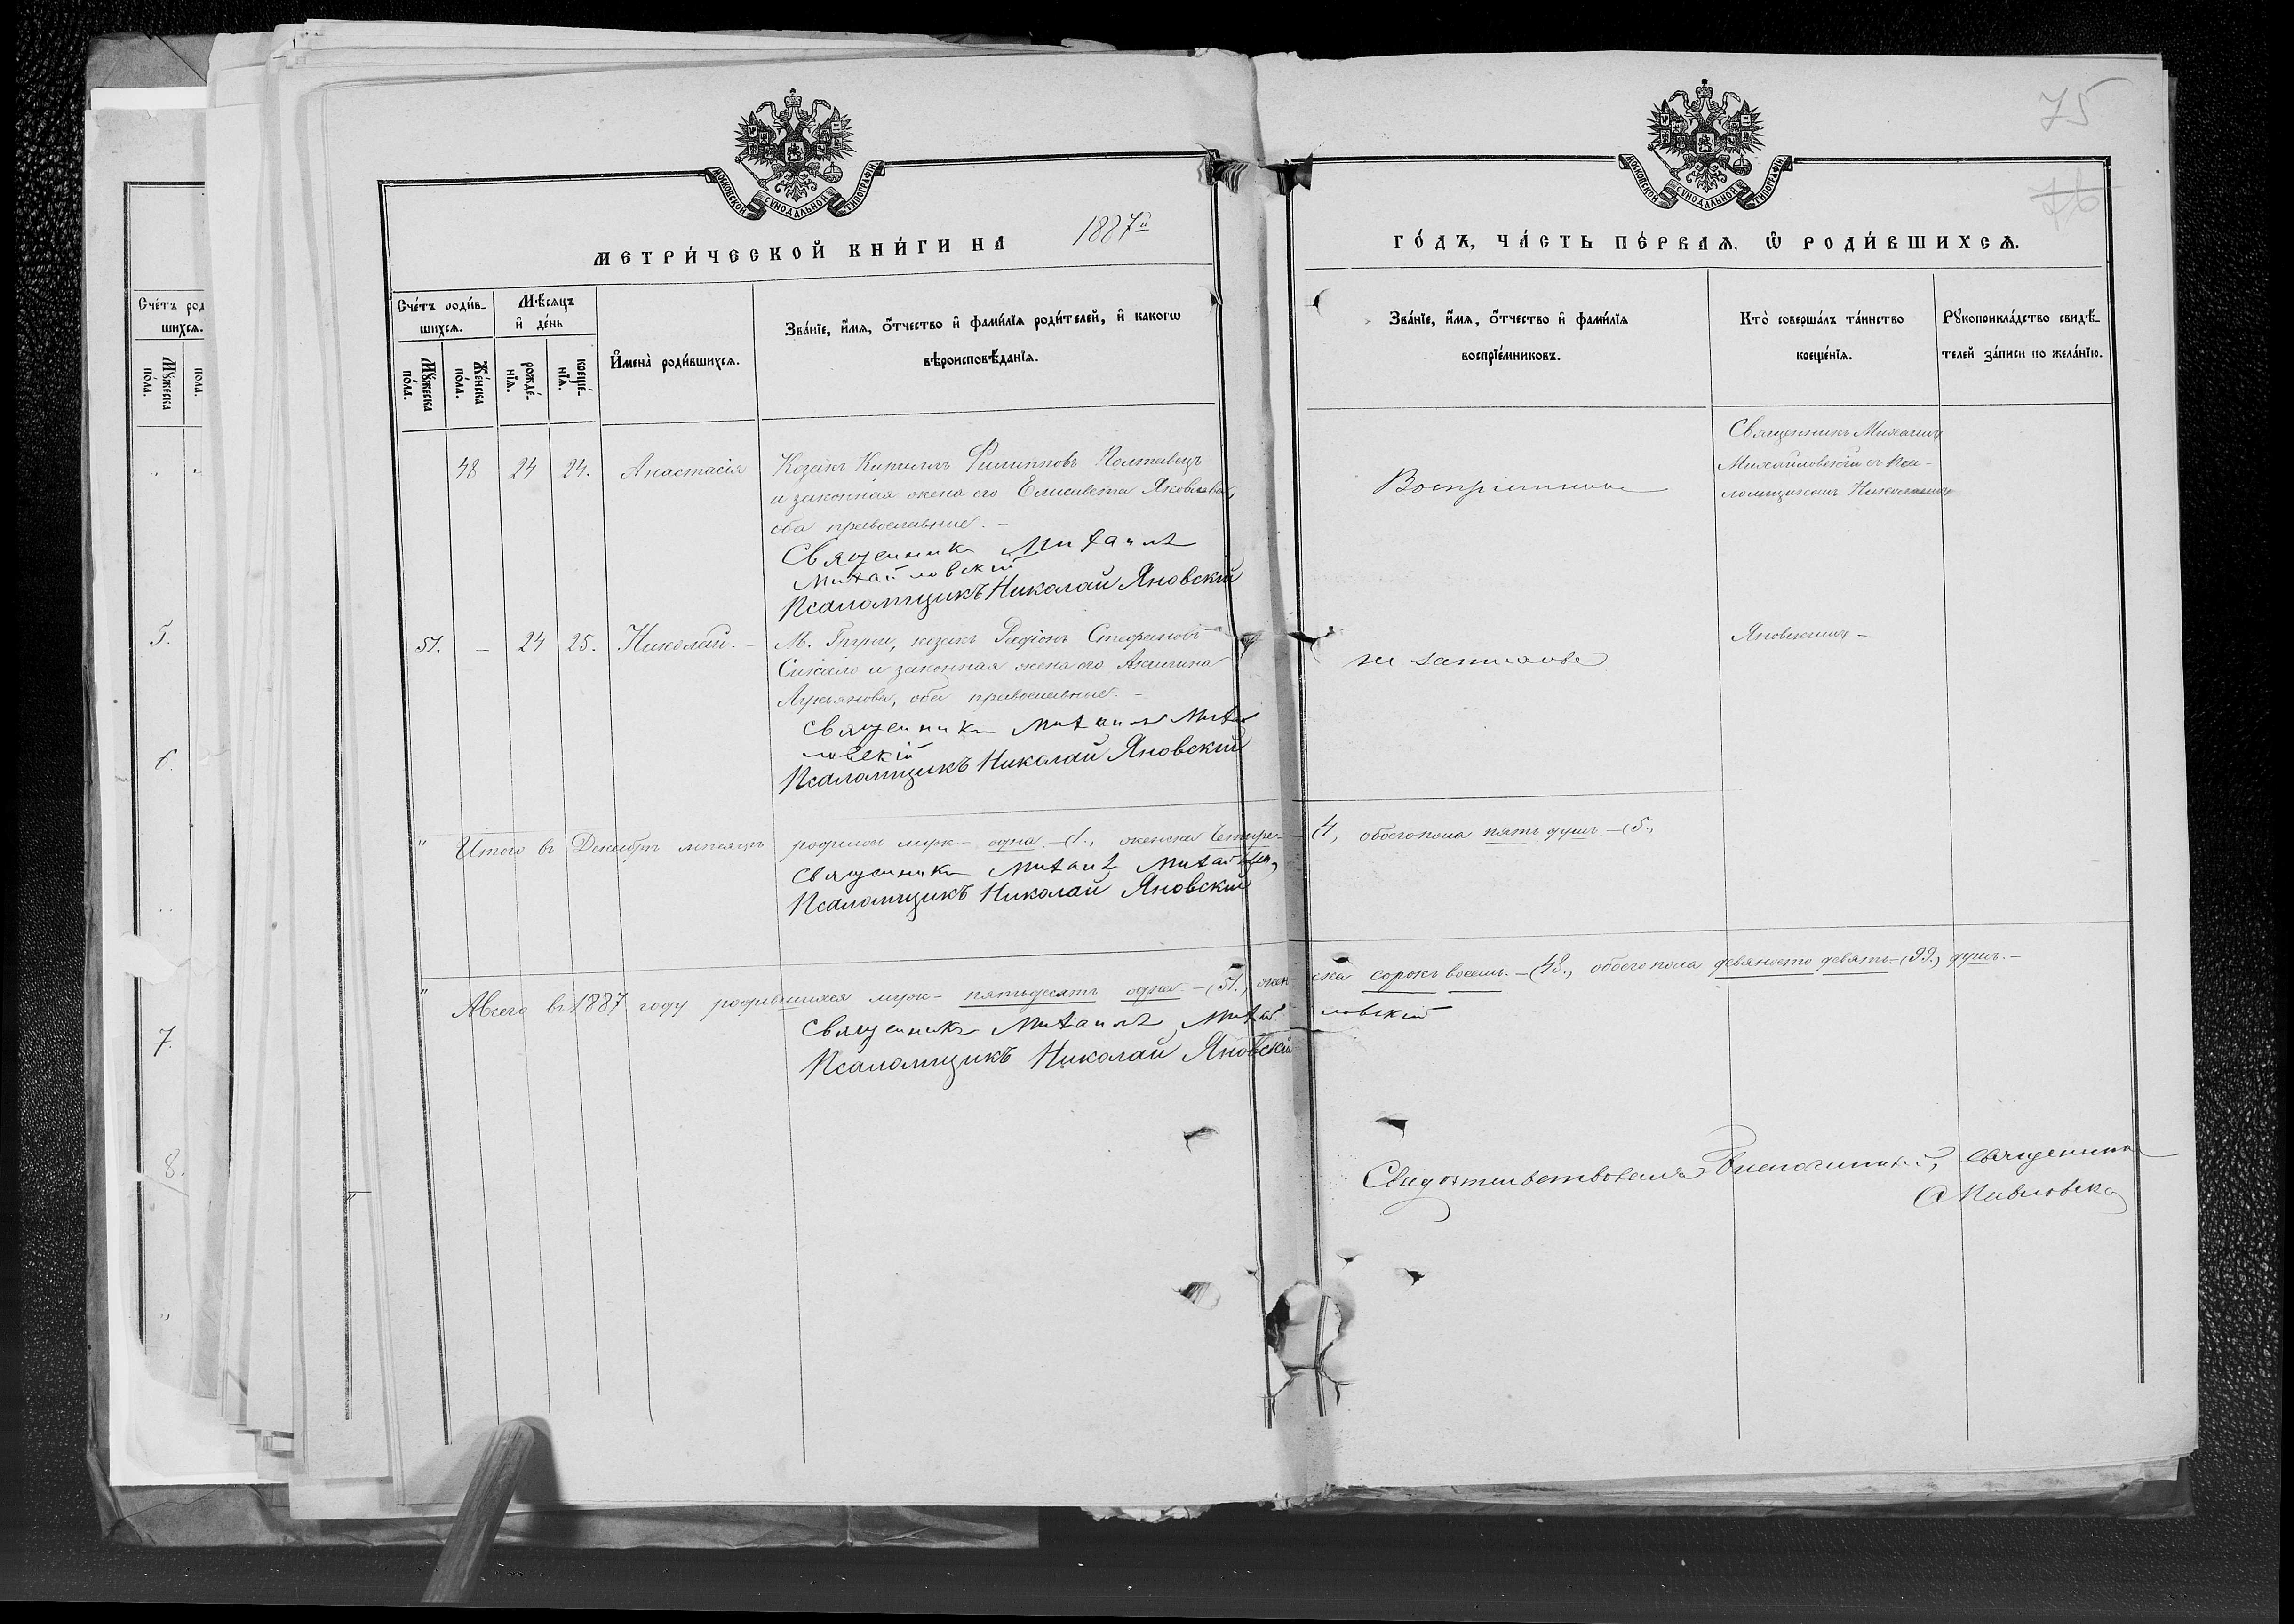 75
76
МОСКОВСКОЙ СѴНОДАЛЬНОЙ ТИПОГРАФІИ
МОСКОВСКОЙ СѴНОДАЛЬНОЙ ТИПОГРАФІИ
МЕТРИ́ЧЕСКОЙ КНИ́ГИ НА 1887й
ГО́ДЪ, ЧА́СТЬ ПЕ́РВАЯ, Ѿ РОДИ́ВШИХСЯ.
Сче́тъ род
шихся.
Мꙋ́жеска по́ла.
по́ла.
Сче́тъ роди́в-
шихся.
Мꙋ́жеска по́ла.
Же́нска по́ла.
Мѣ́сяцъ
и҆ де́нь
рожде́-
нїя.
креще́-
нїя.
И҆мена̀ роди́вшихся.
Зва́нїе, и҆́мя, ѻ҆́тчество и҆ фами́лїя роди́телей, и҆ какогѡ
вѣроисповѣ́данїя.
Зва́нїе, и҆́мя, ѻ҆́тчество и҆ фами́лїя
воспрїе́мниковъ.
Кто̀ соверша́лъ та́инство
креще́нїя.
Рꙋкоприкла́дство свидѣ́-
телей за́писи по жела́нїю.
48 24 24. Анастасія
Козакъ Кириллъ Филипповъ Полтавецъ
и законная жена его Елисавета Яковлева,
оба православные. –
Священникъ Михаилъ
Михайловскій
Псаломщикъ Николай Яновскій
Воспріемники
Священникъ Михаилъ
Михайловскій съ Пса-
ломщикомъ Николаемъ
51. – 24 25. Николай. –
М. козакъ Родіонъ Стефановъ
и законная жена его Акилина
Лукьянова, оба православные. –
Священникъ Михаилъ Михай
ловскій
Псаломщикъ Николай Яновскій
не записаны
Яновскимъ –
" Итого въ Декабрѣ мѣсяцѣ родилось муж. – одна. – (1., женска четыре – 4, обоего пола пять душъ. – (5.,
Священникъ Михаилъ
Псаломщикъ Николай Яновскій
" Авсего въ 1887 году родившихся муж – пятьдесятъ одна. – (51.) жен- ска сорокъ восемь. – (48., обоего пола девяносто девять – (99.) душъ. –
Священникъ Михаилъ Михай ловскій
Псаломщикъ Николай Яновскій
Свидѣтельствовалъ священникъ
5.
6.
7.
8.